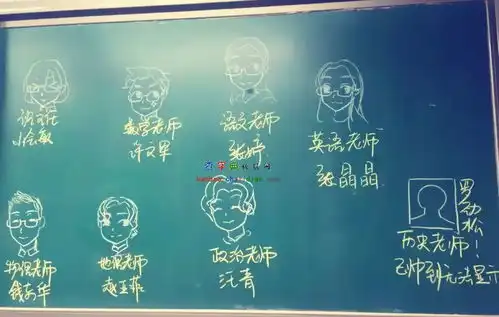 数学老师
许文军
语文老师
张婷
英语老师
张晶晶
物理老师
钱安华
地理老师
赵亚菲
政治老师
汪青
罗劲松
历史老师!
已帅到无法显示